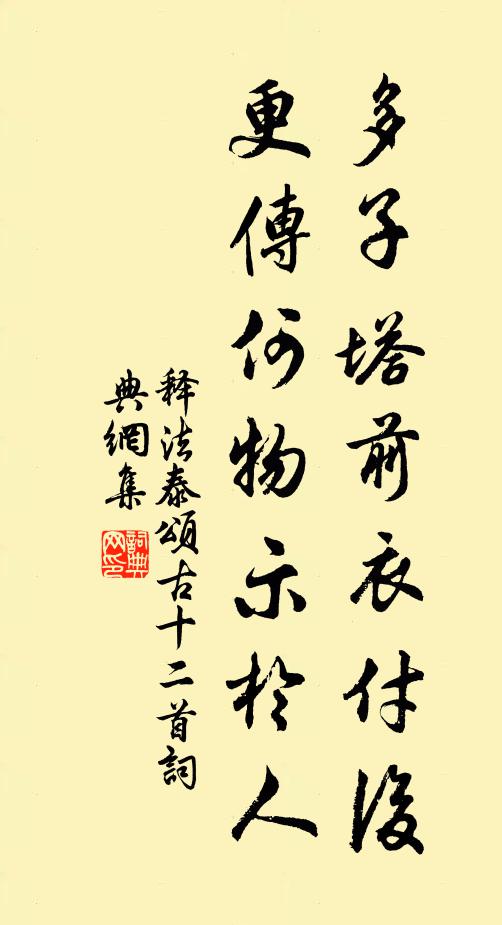 多子塔前衣付後
更傳何物示於人
释法泰頌古十二首詞
典網集
詞典
网印